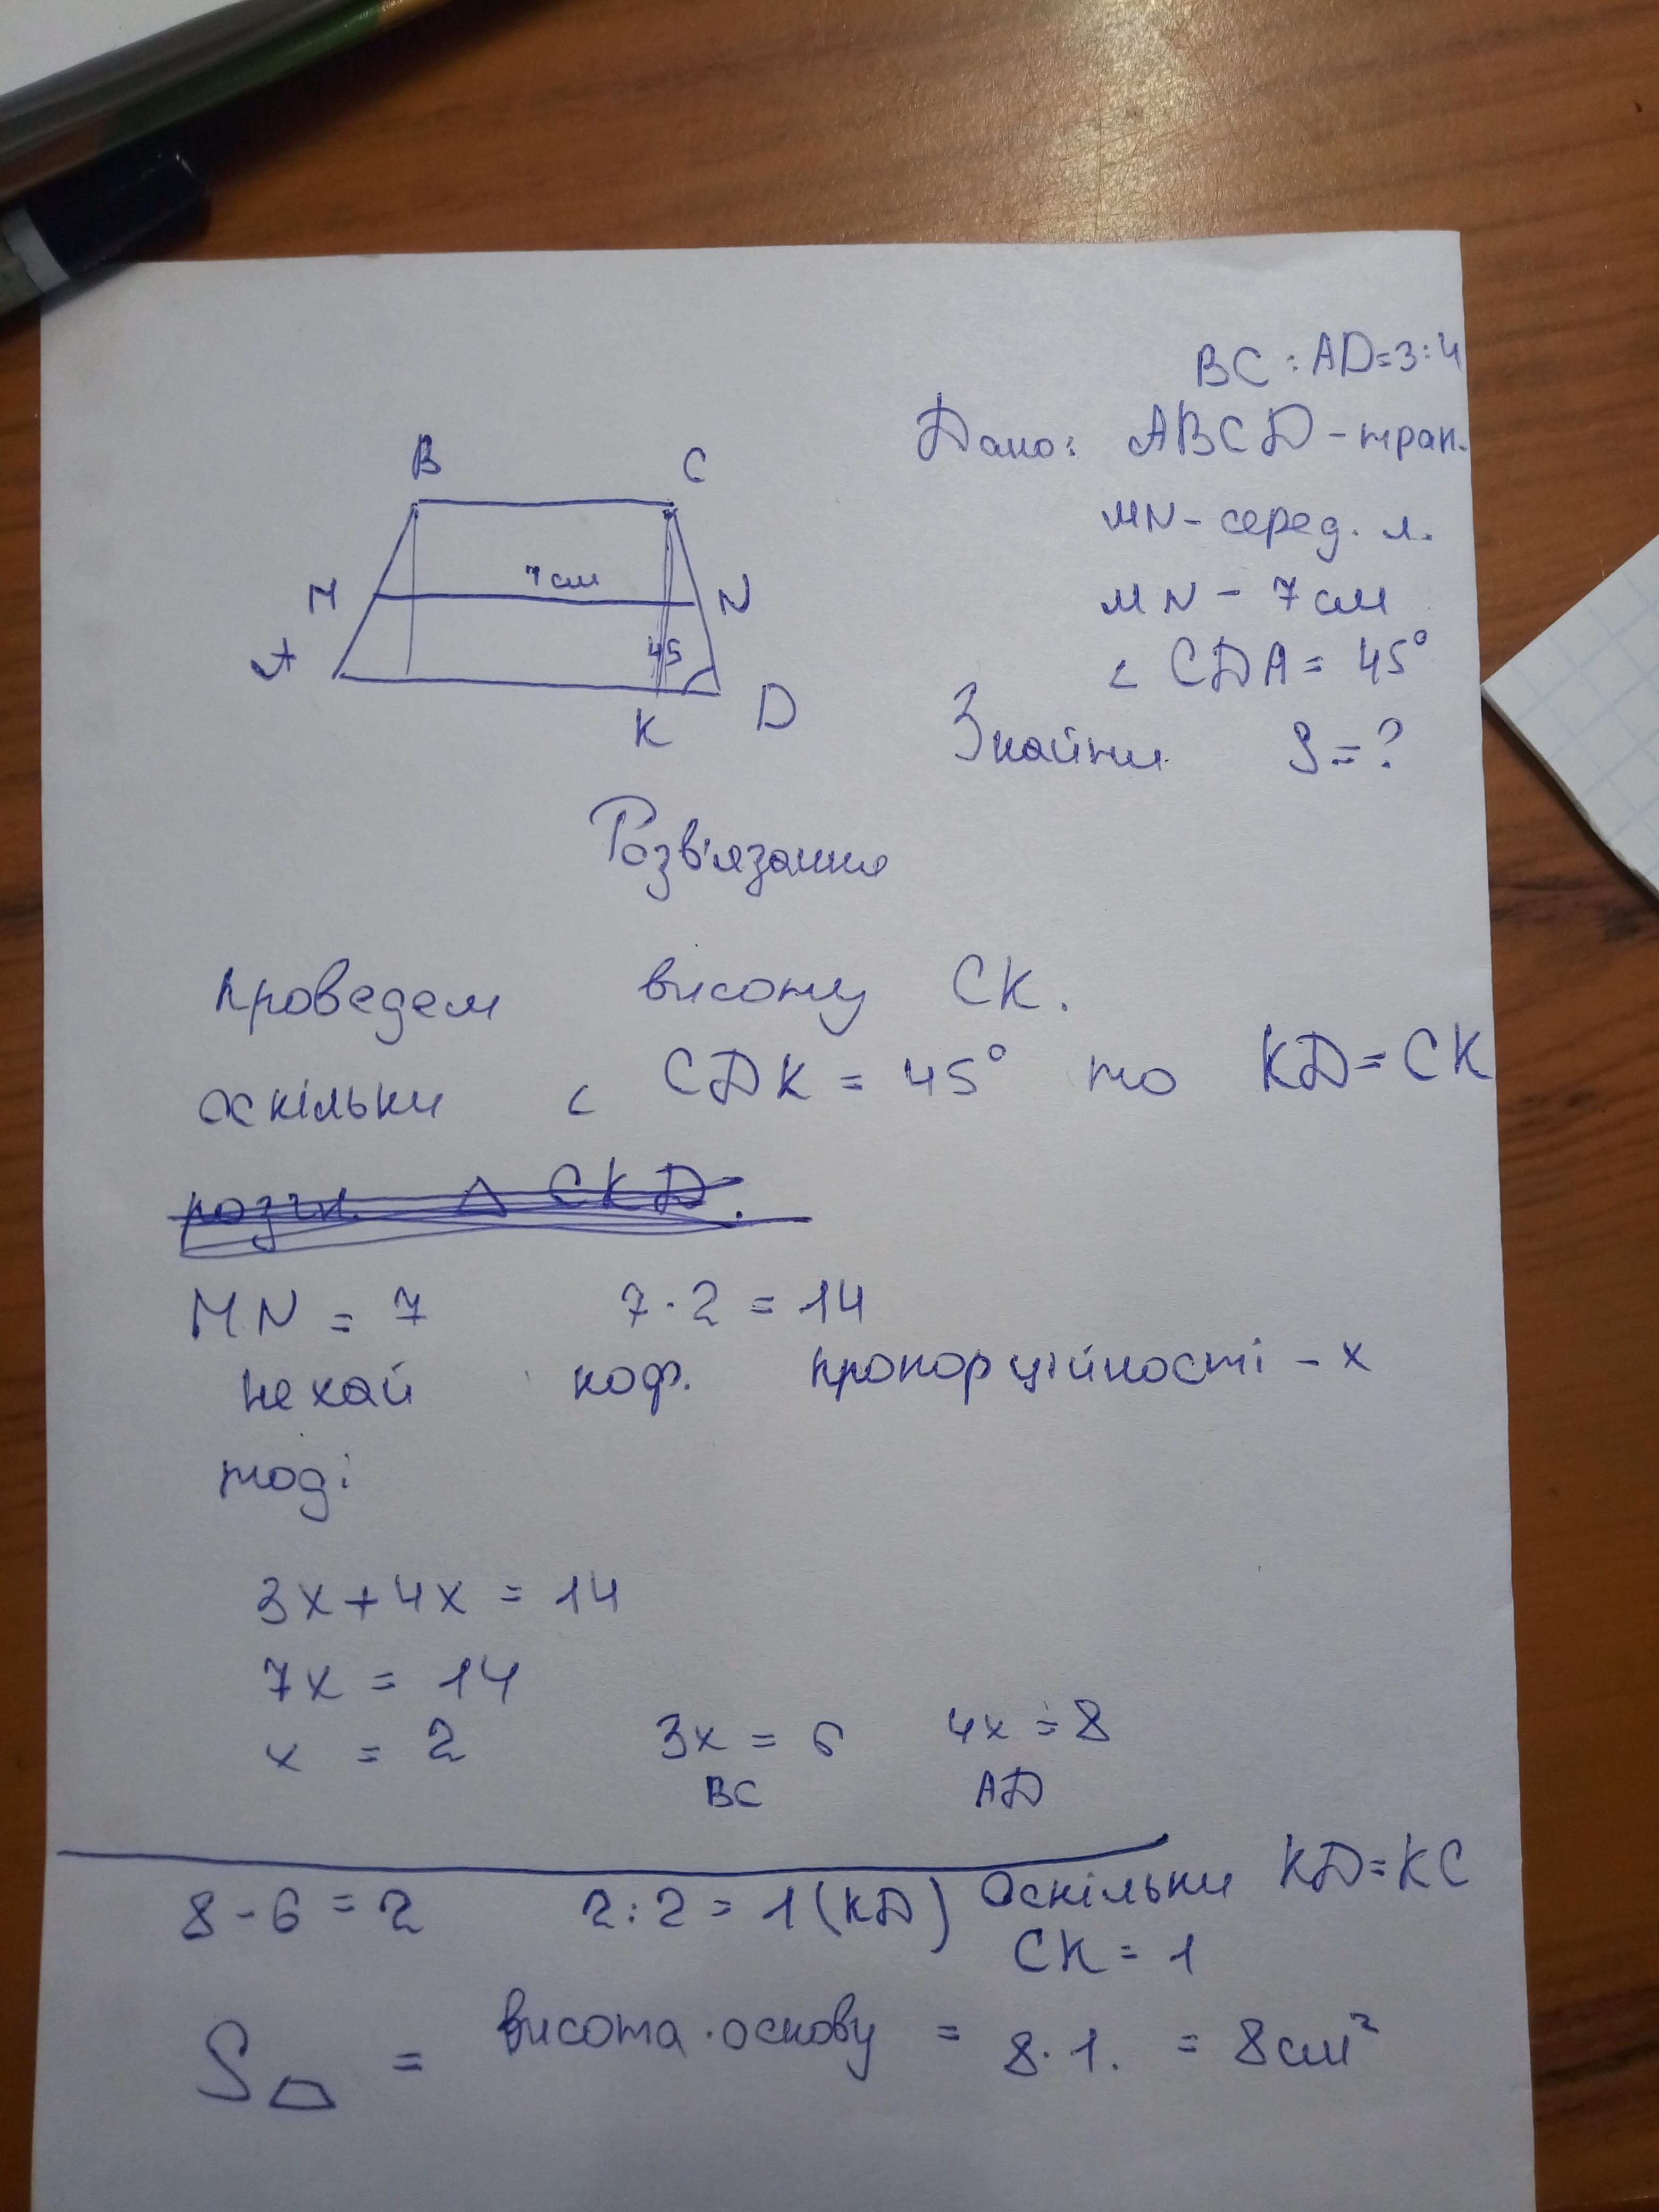 BC : AD=3:4
Дано: ABCD - трап.
B C
MN - серед. л.
7 см
M N
MN - 7 см
A 45
∠ CDA = 45°
K D
Знайти S = ?
Розв'язання
проведем висоту CK.
оскільки ∠ CDK = 45° то KD = CK
розгл. Δ CKD.
MN = 7 7·2 = 14
нехай коф. пропорційності - x
тоді
3x+4x = 14
7x = 14
x = 2 3x = 6 4x = 8
BC AD
8-6 = 2 2:2 = 1 (KD) Оскільки KD=KC
CK = 1
S = висота · основу = 8·1. = 8 см²